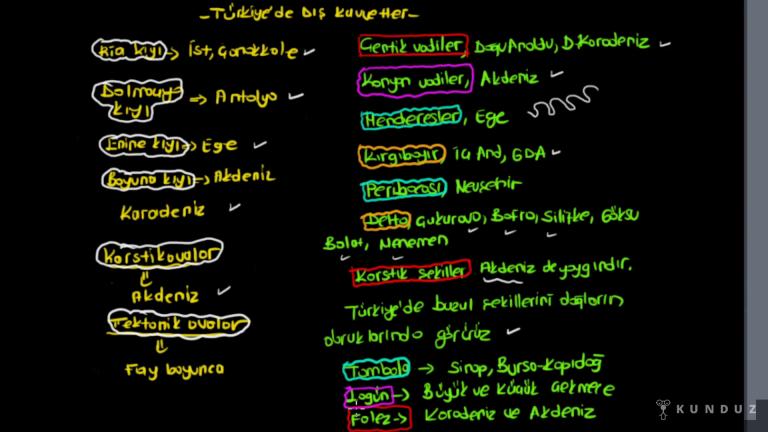 -Türkiye'de Dış Kuvvetler-
Ria kıyı → İst, Çanakkale
Dalmaçya kıyı ⇒ Antalya
Enine kıyı → Ege
Boyuna kıyı → Akdeniz
Karadeniz
Karstik ovalar
Akdeniz
Tektonik ovalar
Fay boyunca
Çentik vadiler, Doğu Anadolu, D. Karadeniz
Kanyon vadiler, Akdeniz
Menderesler, Ege
Kırgıbayır, İç And, GDA
Peribacası, Nevşehir
Delta, Çukurova, Bafra, Silifke, Göksu
Balat, Menemen
Karstik şekiller Akdeniz'de yaygındır.
Türkiye'de buzul şekillerini dağların
doruklarında görürüz
Tombolo → Sinop, Bursa-Kapıdağ
Lagün → Büyük ve Küçük Çekmece
Falez → Karadeniz ve Akdeniz
KUNDUZ